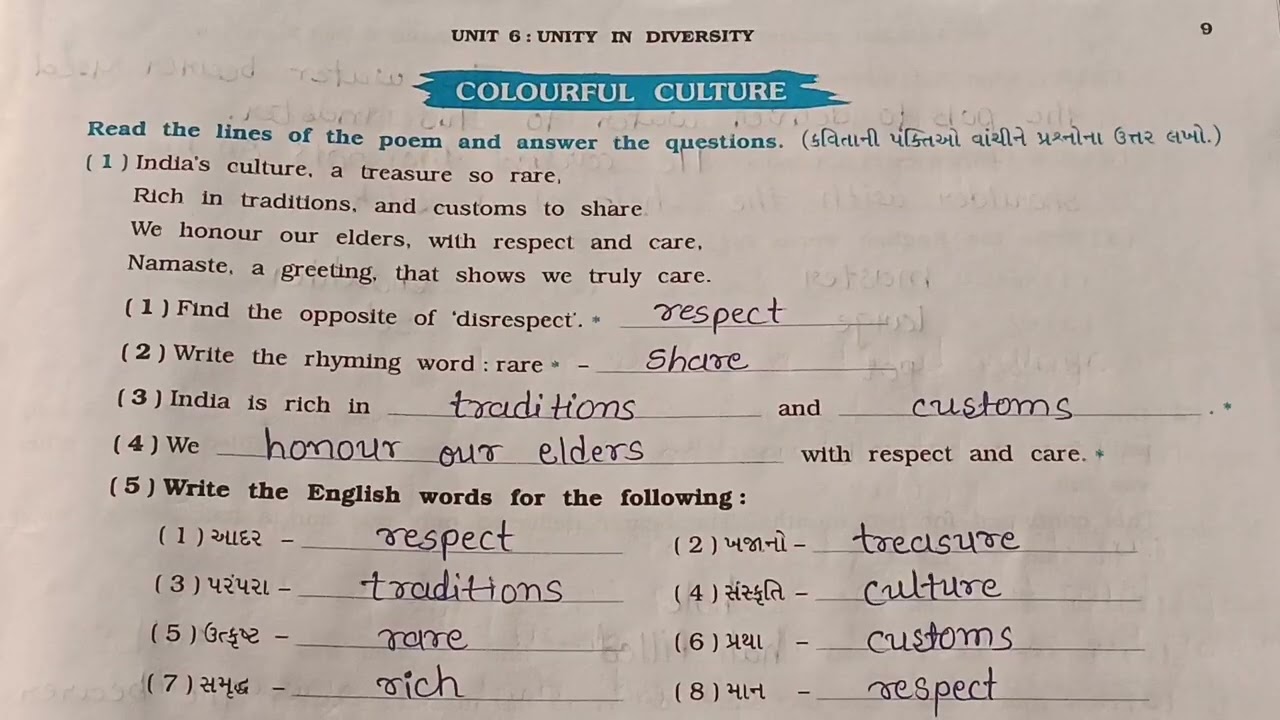 UNIT 6 : UNITY IN DIVERSITY 9
COLOURFUL CULTURE
Read the lines of the poem and answer the questions. (કવિતાની પંક્તિઓ વાંચીને પ્રશ્નોના ઉત્તર લખો.)
( 1 ) India's culture, a treasure so rare,
Rich in traditions, and customs to share.
We honour our elders, with respect and care,
Namaste, a greeting, that shows we truly care.
( 1 ) Find the opposite of 'disrespect'. * respect
( 2 ) Write the rhyming word : rare * – share
( 3 ) India is rich in traditions and customs . *
( 4 ) We honour our elders with respect and care. *
( 5 ) Write the English words for the following :
( 1 ) આદર – respect ( 2 ) ખજાનો – treasure
( 3 ) પરંપરા – traditions ( 4 ) સંસ્કૃતિ – culture
( 5 ) ઉત્કૃષ્ટ – rare ( 6 ) પ્રથા – customs
( 7 ) સમૃદ્ધ – rich ( 8 ) માન – respect